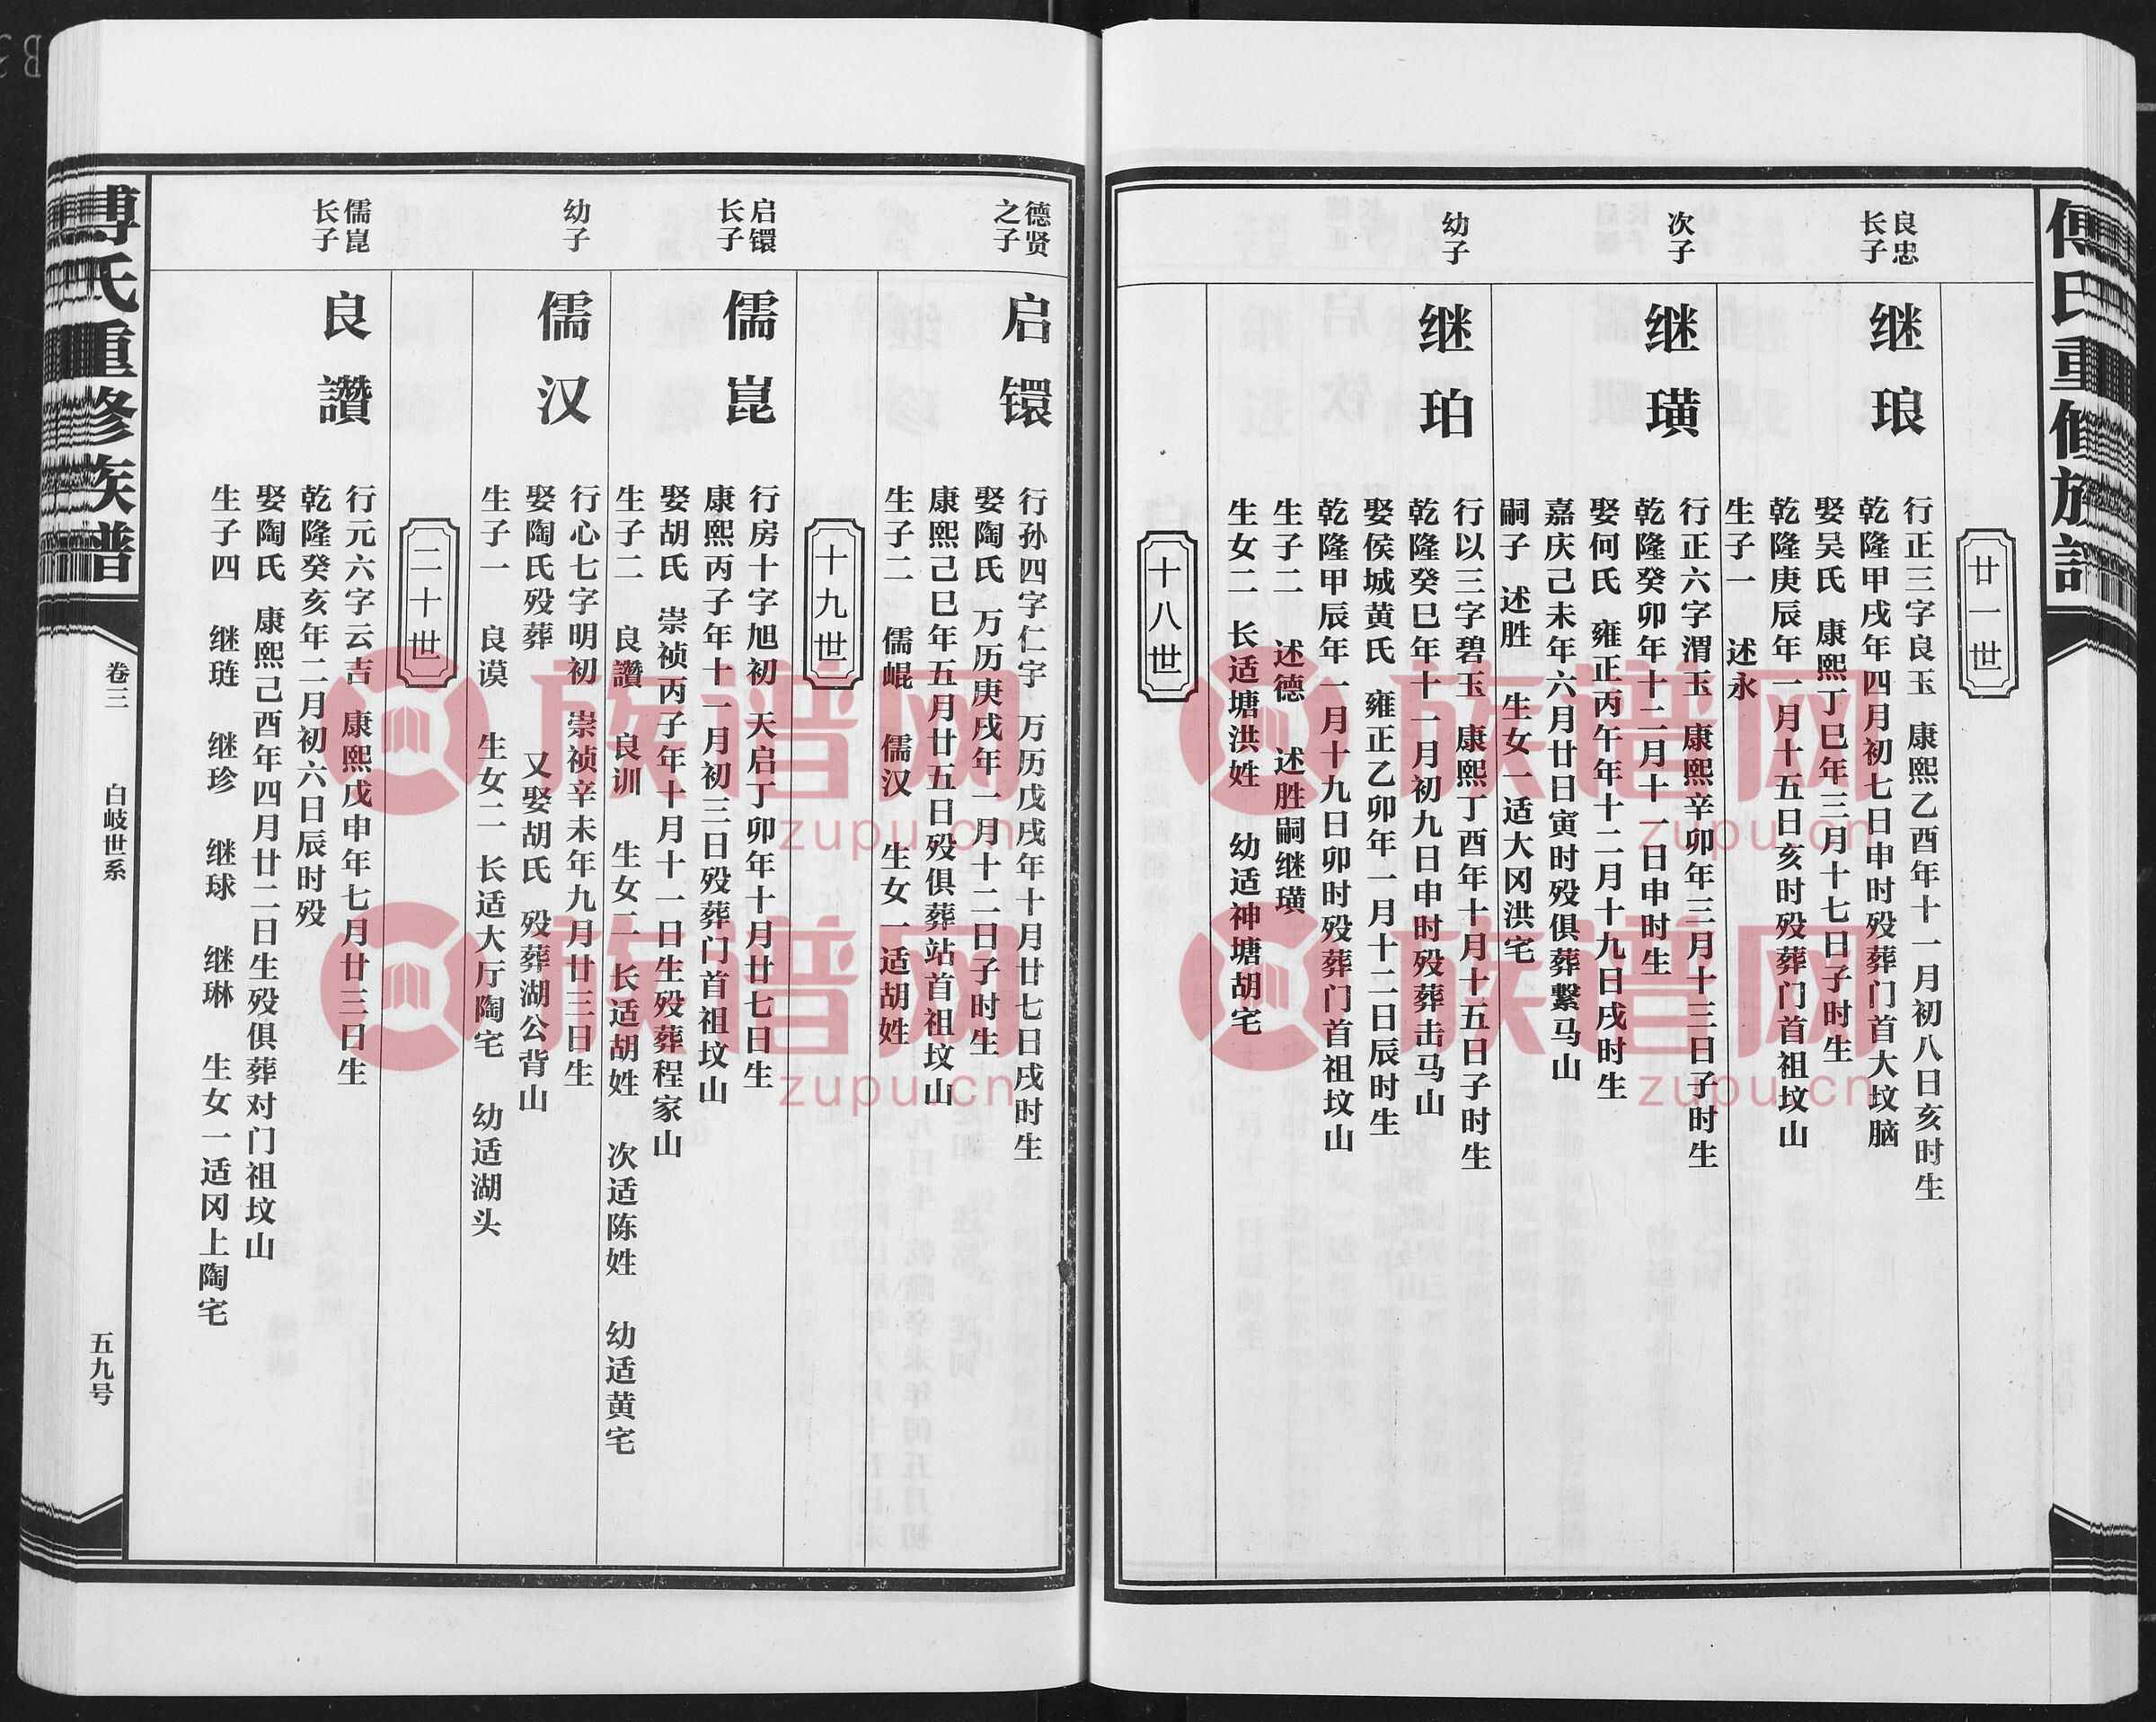 傅氏重修族谱
廿一世
良忠
长子
继琅
行正三字良玉 康熙乙酉年十一月初八日亥时生
乾隆甲戌年四月初七日申时殁葬门首大坟脑
娶吴氏 康熙丁巳年三月十七日子时生
乾隆庚辰年一月十五日亥时殁葬门首祖坟山
生子一 述永
次子
继璜
行正六字渭玉 康熙辛卯年三月十三日子时生
乾隆癸卯年十二月十一日申时生
娶何氏 雍正丙午年十二月十九日戌时生
嘉庆己未年六月廿日寅时殁俱葬繋马山
嗣子 述胜 生女一适大冈洪宅
幼子
继珀
行以三字碧玉 康熙丁酉年十月十五日子时生
乾隆癸巳年十一月初九日申时殁葬击马山
娶侯城黄氏 雍正乙卯年一月十二日辰时生
乾隆甲辰年一月十九日卯时殁葬门首祖坟山
生子二 述德 述胜嗣继璜
生女二 长适塘洪姓 幼适神塘胡宅
十八世
德贤
之子
启镮
行孙四字仁宇 万历戊戌年十月廿七日戌时生
娶陶氏 万历庚戌年一月十二日子时生
康熙己巳年五月廿五日殁俱葬站首祖坟山
生子二 儒崐 儒汉 生女一适胡姓
十九世
启镮
长子
儒崑
行房十字旭初 天启丁卯年十月廿七日生
康熙丙子年十一月初三日殁葬门首祖坟山
娶胡氏 崇祯丙子年十月十一日生殁葬程家山
生子二 良讚 良训 生女二 长适胡姓 次适陈姓 幼适黄宅
幼子
儒汉
行心七字明初 崇祯辛未年九月廿三日生
娶陶氏殁葬 又娶胡氏 殁葬湖公背山
生子一 良谟 生女二 长适大厅陶宅 幼适湖头
二十世
儒崑
长子
良讚
行元六字云吉 康熙戊申年七月廿三日生
乾隆癸亥年二月初六日辰时殁
娶陶氏 康熙己酉年四月廿二日生殁俱葬对门祖坟山
生子四 继琏 继珍 继球 继琳 生女一适冈上陶宅
傅氏重修族谱
卷三 白岐世系
五九号
族谱网
zupu.cn
族谱网
zupu.cn
族谱网
zupu.cn
族谱网
zupu.cn